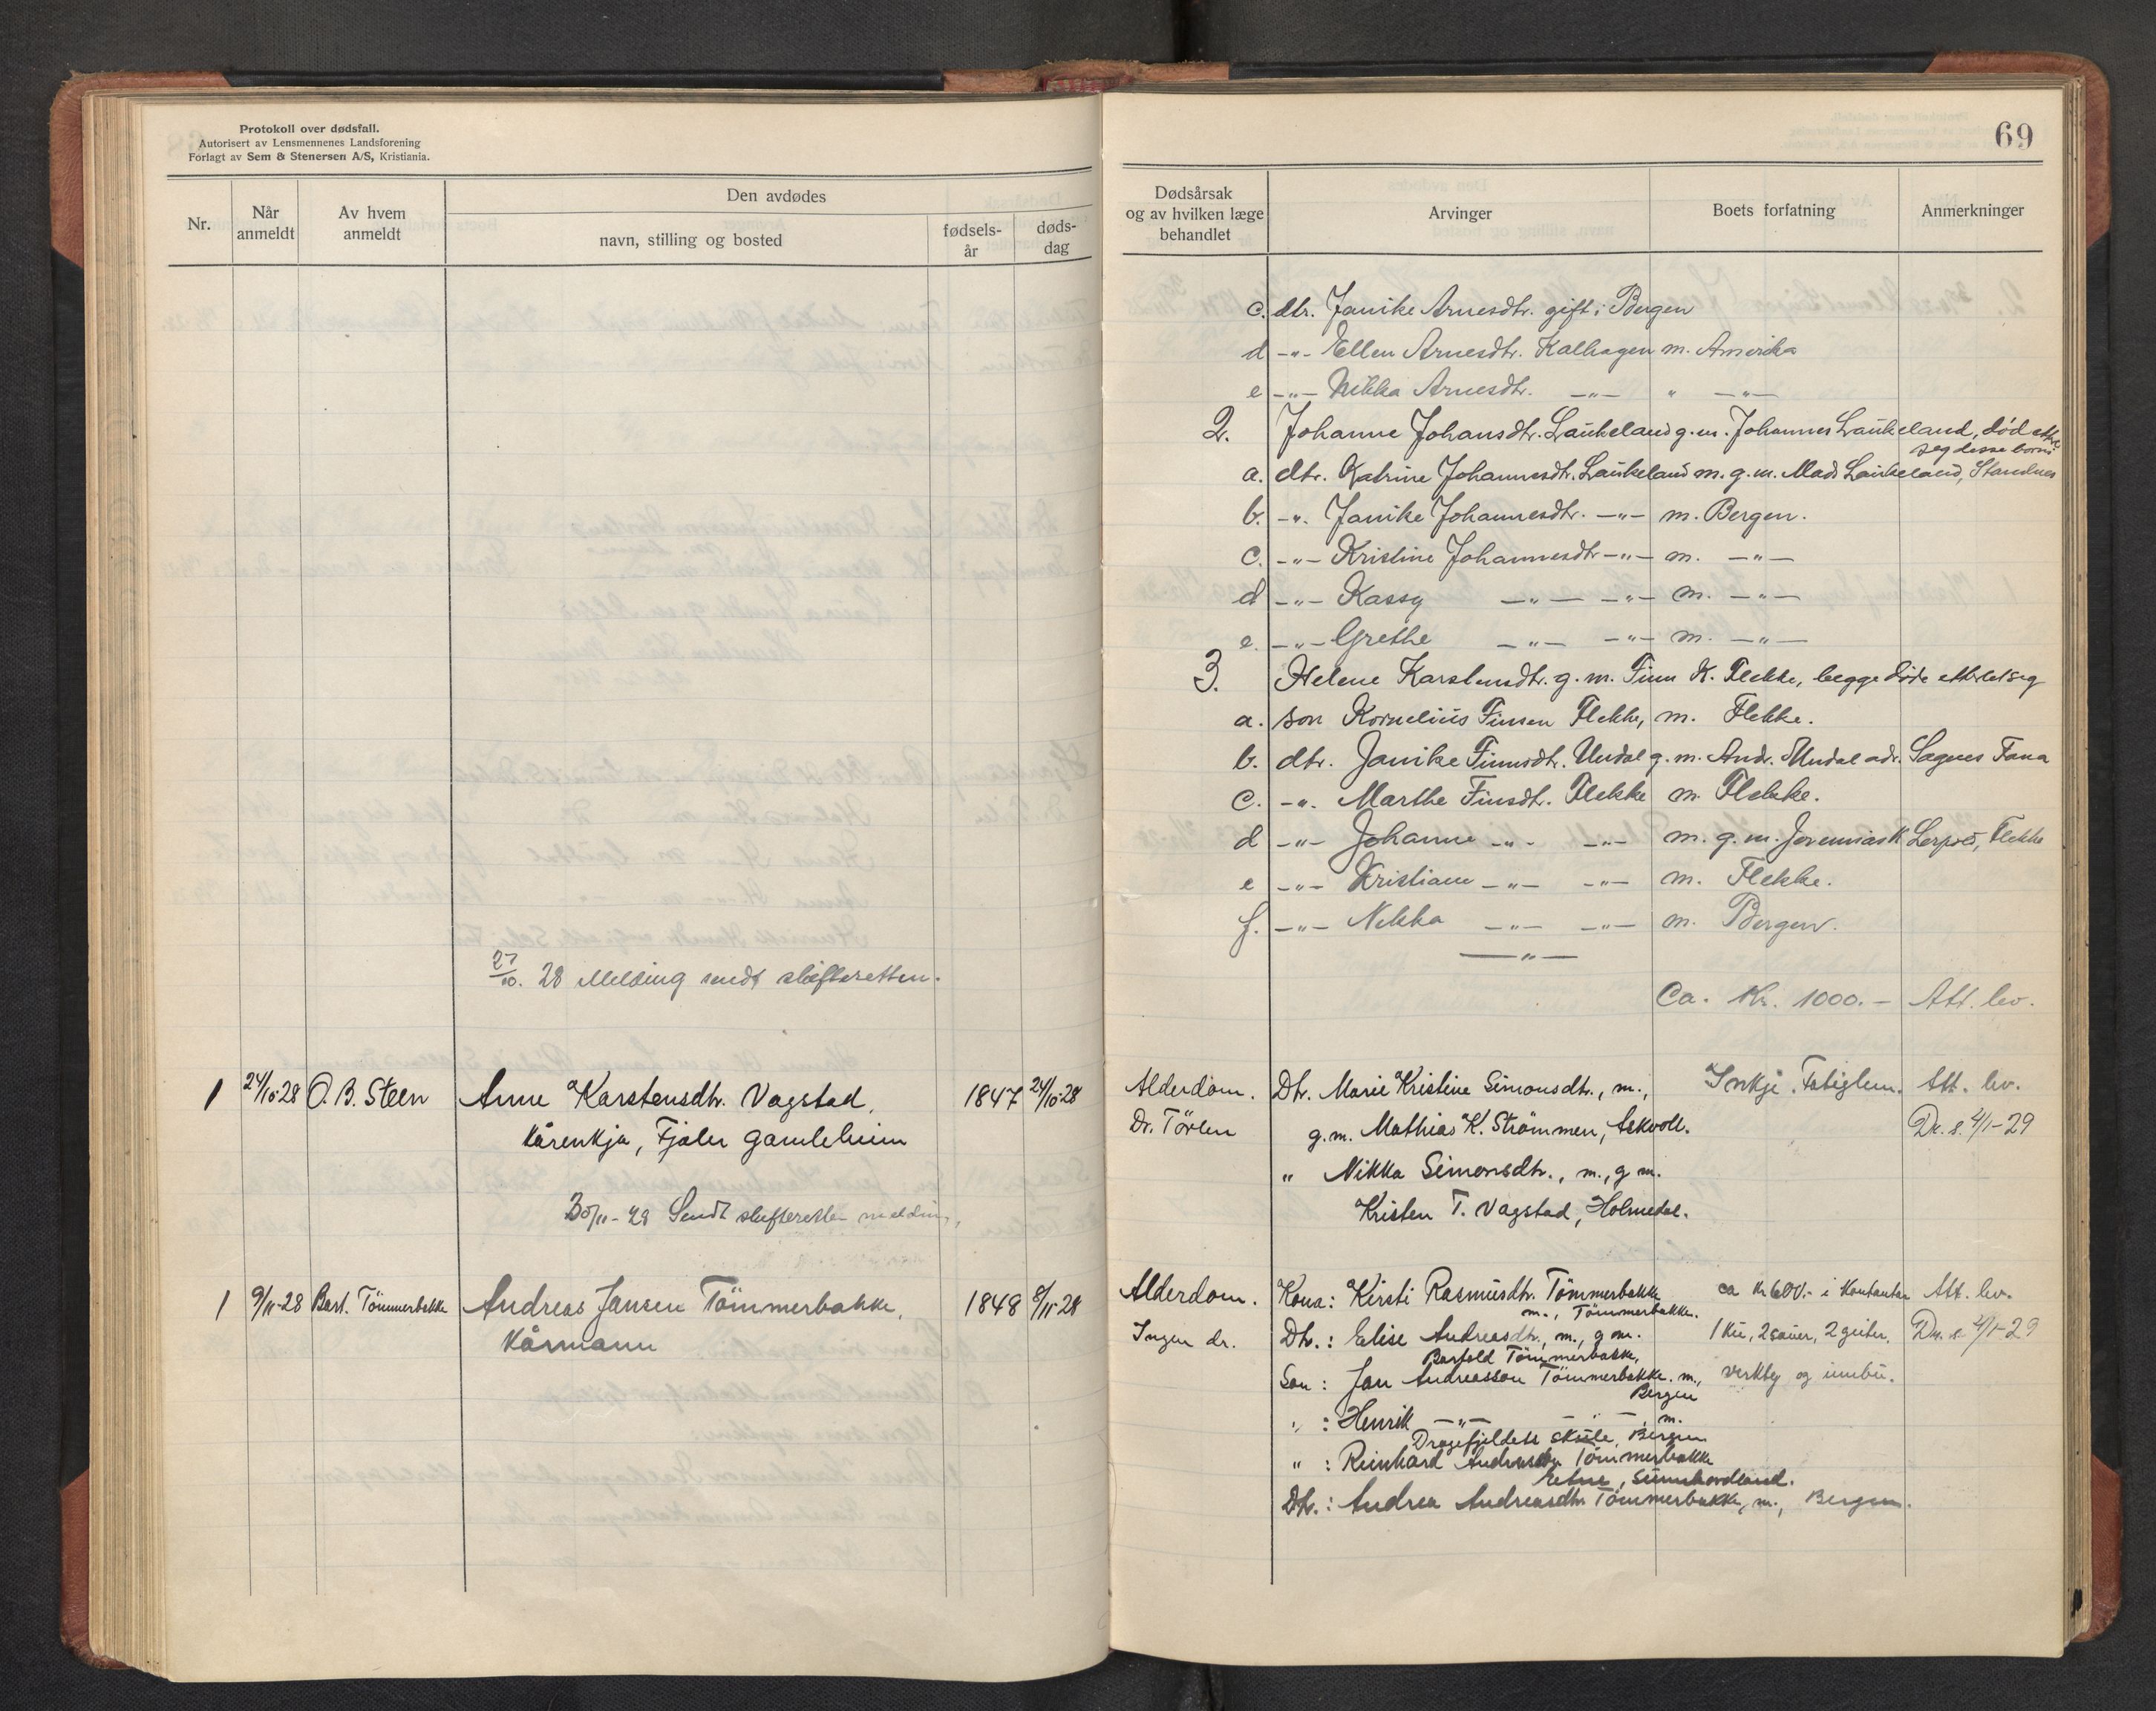 Protokoll over dødsfall.
Autorisert av Lensmennenes Landsforening
Forlagt av Sem & Stenersen A/S, Kristiania.
Nr.
Når anmeldt
Av hvem anmeldt
Den avdødes
navn, stilling og bosted
fødselsår
dødsdag
27/10. 28 Melding sendt skifteretten.
1 24/10-28 O. B. Steen Anne Karstensdtr. Vagstad, 1847 24/10-28
Kårenkja, Fjaler gamleheim
30/11-28 Sendt skifteretten melding,
1 9/11-28 Bart. Tömmerbakke Andreas Jansen Tömmerbakke, 1848 8/11-28
Kårmann
69
Dødsårsak og av hvilken læge behandlet
Arvinger
Boets forfatning
Anmerkninger
c. dtr. Janike Arnesdtr. gift i Bergen
d -"- Ellen Arnesdtr. Kalhagen m. Amerika
e -"- Nikka Arnesdtr. -"- " -"-
2. Johanne Johansdtr. Laukeland g. m. Johannes Laukeland, død etter
seg desse born:
a. dtr. Katrine Johannesdtr. Laukeland m. g. m. Mads Laukeland,
b. -". Janike Johannesdtr. -"- m. Bergen.
c. -"- Kristine Johannesdtr -"- m. -"-
d -"- Kassy -"- -"- m. -"-
e. -"- Grethe -"- -"- m. -"-
3. Helene Karstensdtr. g. m. Finn K. Flekke, begge døde etterlet seg
a. son Kornelius Finsen Flekke, m. Flekke.
b. dtr. Janike Finnsdtr. Undal g. m. Andr. Undal adr. Sagnes Fana
c. -". Marthe Finsdtr. Flekke m. Flekke.
d -"- Johanne -"- -"- m. g. m. Jeremias K Lerpold, Flekke
e -"- Kristiane -"- -"- m. Flekke.
f. -"- Nikka -"- -"- m. Bergen.
-"-
Ca. Kr. 1000.- Att. lev.
Alderdom. Dtr. Marie Kristine Simonsdtr., m., Inkje. Fatiglem. Att. lev.
Dr. Törlen g. m. Mathias K. Strömmen, Askvoll. Dk. s. 4/1-29
" Nikka Simonsdtr., m., g m.
Kristen T. Vagstad, Holmedal.
Alderdom. Kona: Kirsti Rasmusdtr. Tömmerbakke ca kr 600.- i Kontantar Att. lev.
m., Tömmerbakke.
Ingen dr. Dtr.: Elise Andreasdtr., m., g m. 1 ku, 2 sauer, 2 geiter, Dk. s. 4/1-29
Bartold Tömmerbakke,
Son: Jan Andreasson Tömmerbakke. m., verkty og innbu.
Bergen
" : Henrik -"- -"- , m.
Dragefjeldets skule, Bergen
" : Reinhard Andreasson Tömmerbakke
Etne, Sunnhordland.
Dtr.: Andrea Andreasdtr Tömmerbakke, m., Bergen.